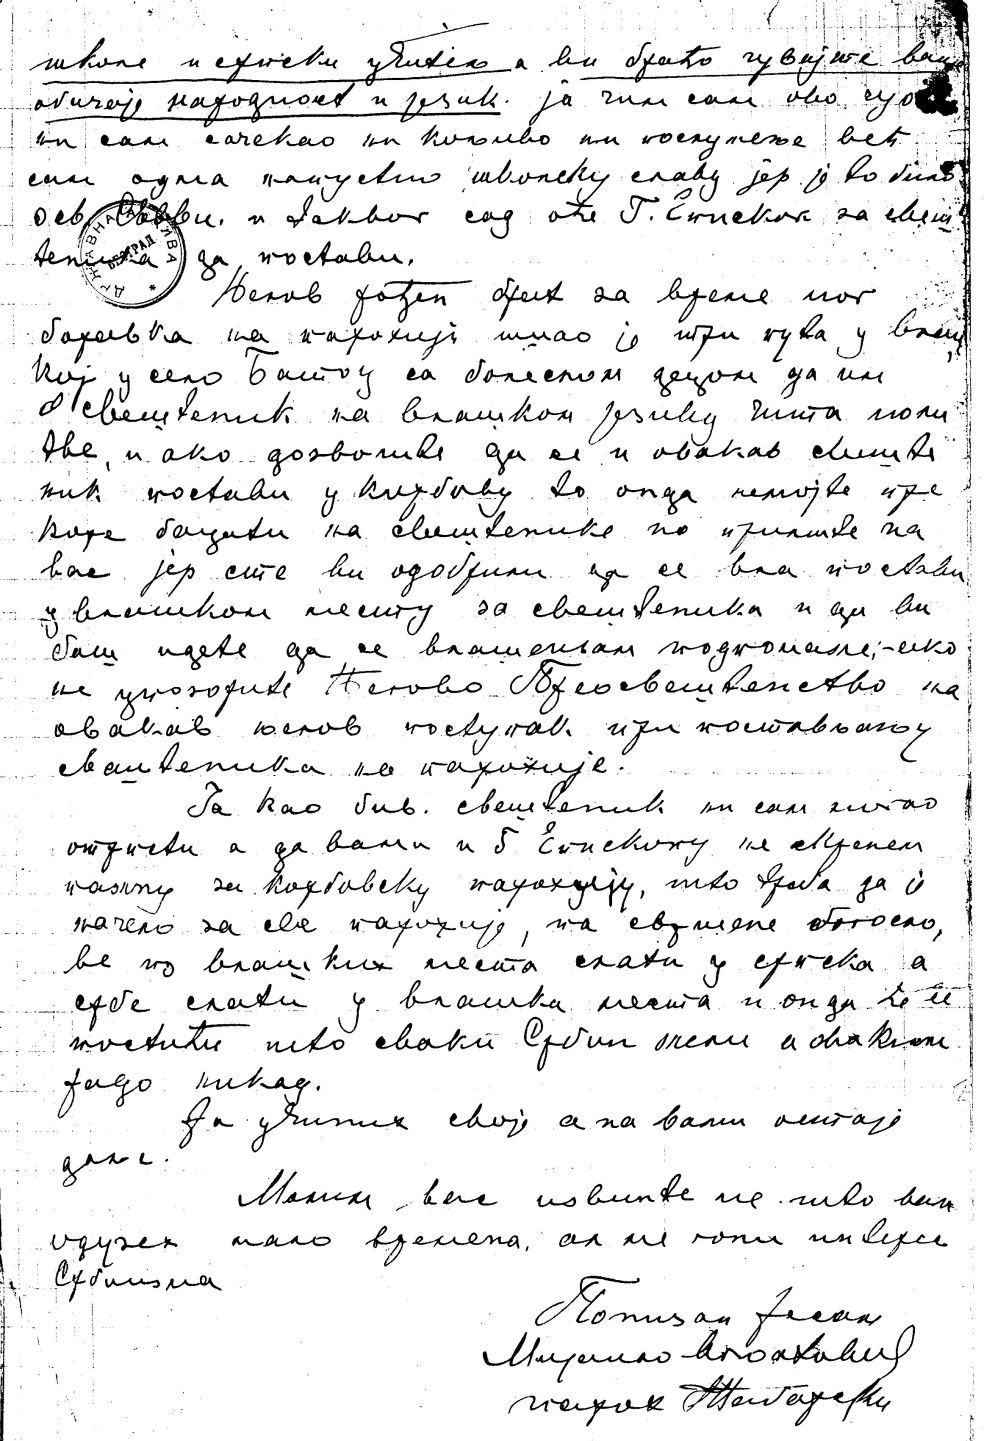 школе и српски учитељ а ви браћо чувајте ваше
обичаје народност и језик. Ја чим сам ово чуо
ни сам сачекао ни кољиво ни послужење већ
сам одма напустио школску славу јер је то било
о св. Сави. и таквог сад оће Г. Епископ за свеш
теника да постави.
Његов рођен брат за време мог
боравка на парохији ишао је три пута у влаш
кој у село са болесном децом да им
свештеник на влашком језику чита моли
тве, и ако дозволите да се и овакав свеште
ник постави у Корбову то онда немојте пре
коре бацати на свештенике но примите на
вас јер сте ви одобрили да се вла постави
у влашком месту за свештеника и да ви
баш идете да се влашенизам подпомаже, – ако
не упозорите Његово Преосвештенство на
овакав његов поступак при постављању
свештеника на парохије.
Ја као бив. свештеник ни сам могао
отрпети а да вами и Г. Епископу не скренем
пажњу за Корбовску парохију, што треба да је
начело за све парохије, па свршене богосло,
ве из влашких места слати у српска а
србе слати у влашка места и онда ће се
постићи што сваки Србин жели а оваким
радо никад.
Ја учиних своје а на вами остаје
даље.
Молим вас извинте ме што вам
одузех мало времена, ал ме гони интерес
Србизма
Понизан
Михаило
парох
ДРЖАВНА АРХИВА
БЕОГРАД